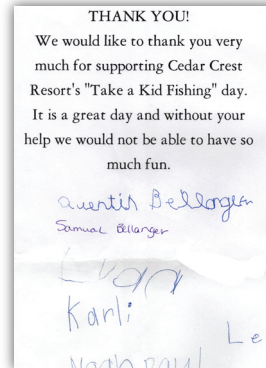 THANK YOU!
We would like to thank you very
much for supporting Cedar Crest
Resort's "Take a Kid Fishing" day.
It is a great day and without your
help we would not be able to have so
much fun.
Quentin Bellanger
Samual Bellanger
Evan
Karli
Le